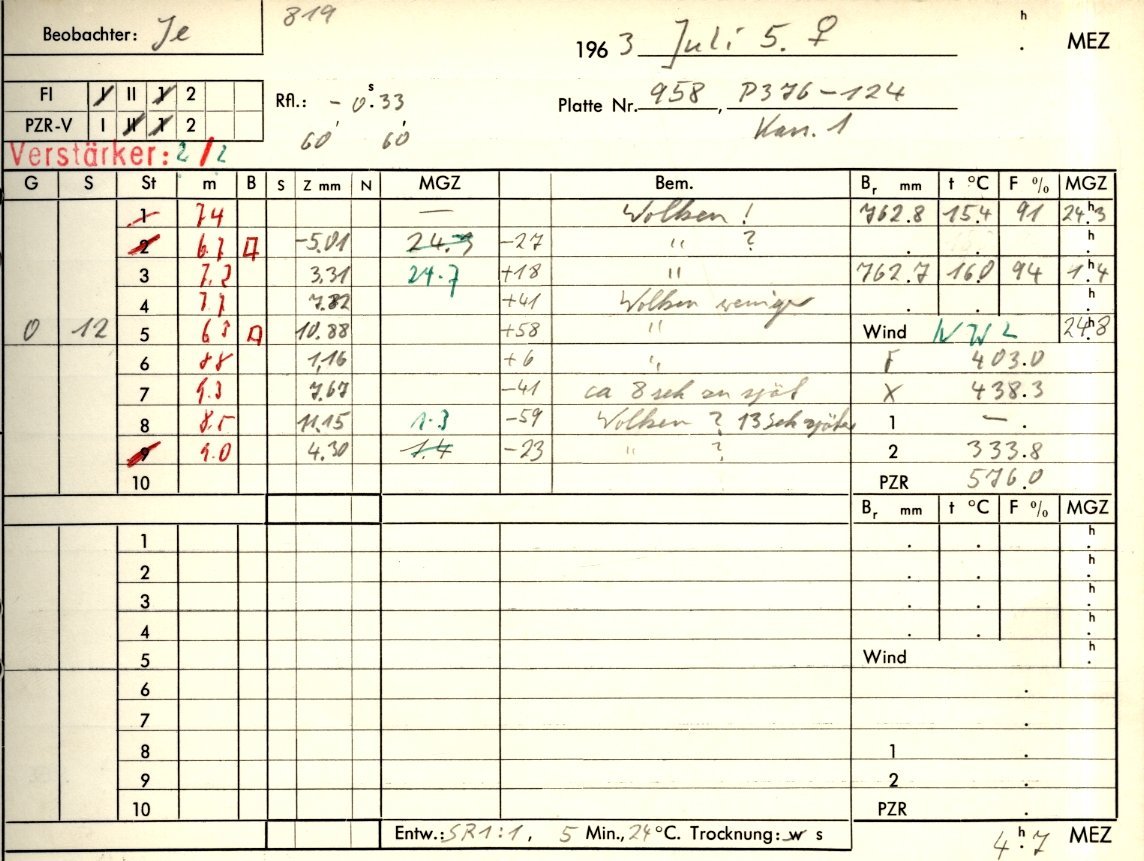 Beobachter: Je
819
1963 Juli 5. ♀
h . MEZ
FI I II 1 2
Rfl.: - 0s.33
Platte Nr. 958, P376-124
PZR-V I II 1 2
60' 60'
Kan. 1
Verstärker: 2/2
G S St m B S Z mm N MGZ Bem. Br mm t °C F % MGZ
1 7.4 — Wolken! 762.8 15.4 91 24h.3
2 -5.01 24.3 -27 " ? h .
3 3.31 24.7 +18 " 762.7 16.0 94 1h.4
4 7.82 +41 Wolken weniger h .
0 12 5 10.88 +58 " Wind NW 2 24h.8
6 1,16 +6 " F 403.0
7 7,67 -41 ca 8 sek zu spät X 438.3
8 11,15 1.3 -59 Wolken ? 13 Sek später 1 — .
9 4.30 1.4 -23 " ? 2 333.8
10 PZR 576.0
Br mm t °C F % MGZ
1 . . h .
2 . . h .
3 . . h .
4 . . h .
5 Wind h .
6 .
7 .
8 1 .
9 2 .
10 PZR .
Entw.: SR1:1, 5 Min., 24°C. Trocknung: w s
4h.7 MEZ